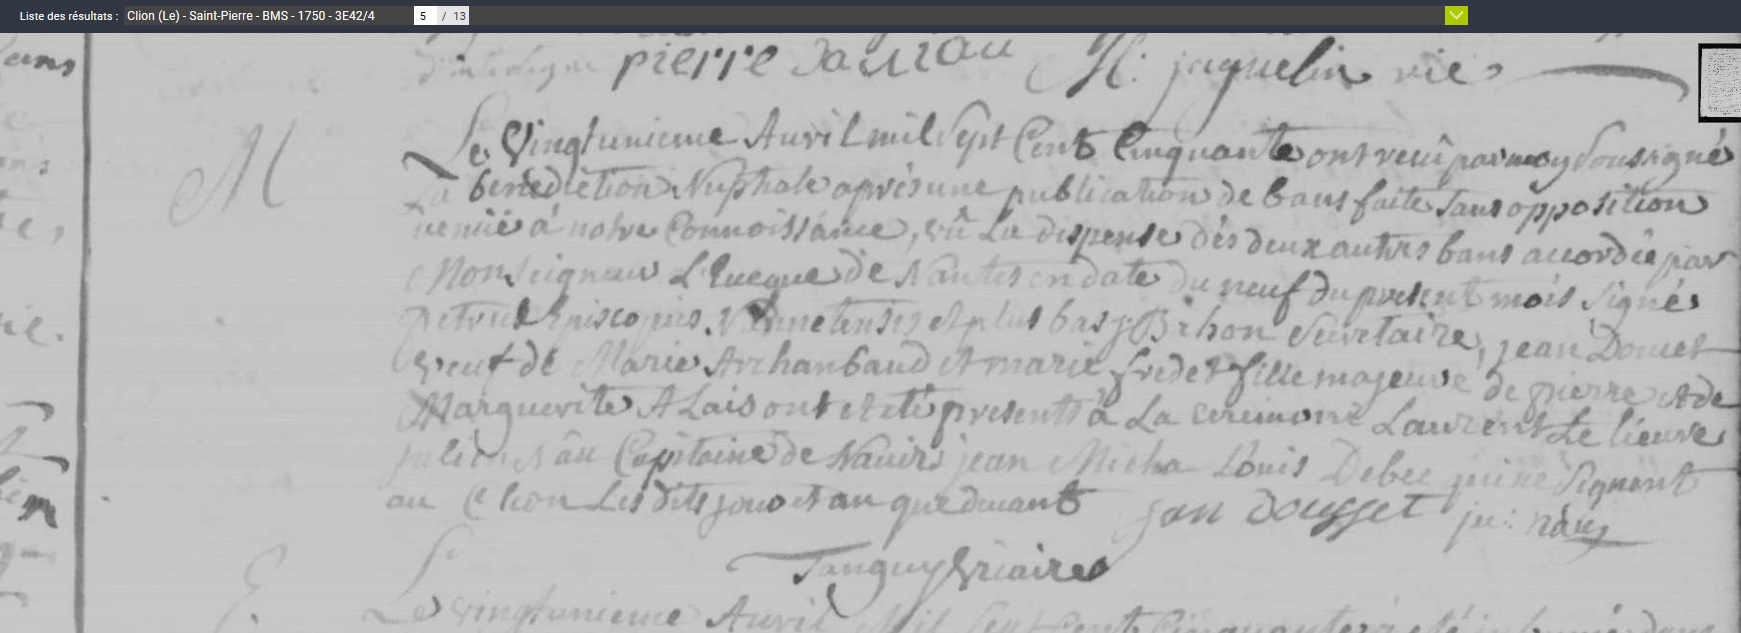 Liste des résultats : Clion (Le) - Saint-Pierre - BMS - 1750 - 3E42/4 5 / 13
pierre H. jaquelin vic
M
Le Vingtunieme Avril mil Sept Cent Cinquante ont recû par moy Soussigné
La benediction Nuptiale aprés une publication de bans faite Sans opposition
venüe à notre Connoissance, vû La dispense des deux autres bans accordée par
Monseigneur L'Eveque de Nantes en date du neuf du present mois Signé
petrus Episcopus Nannetensis et plus bas j: Bihon Secretaire, jean Doucet
Veuf de Marie Archambaud et marie fredet fille majeure de pierre et de
Marguerite ALais ont eté presents à La ceremonie Laurent Le lieuvre
julien Nau Capitaine de Navire jean Micha Louis Debec qui ne Signent
au Clion Les dits jour et an que devant jan dousset ju: nau
Tanguy Vicaire
E.
Le vingtunieme Avril Mil Sept Cent Cinquante a eté inhumé dans